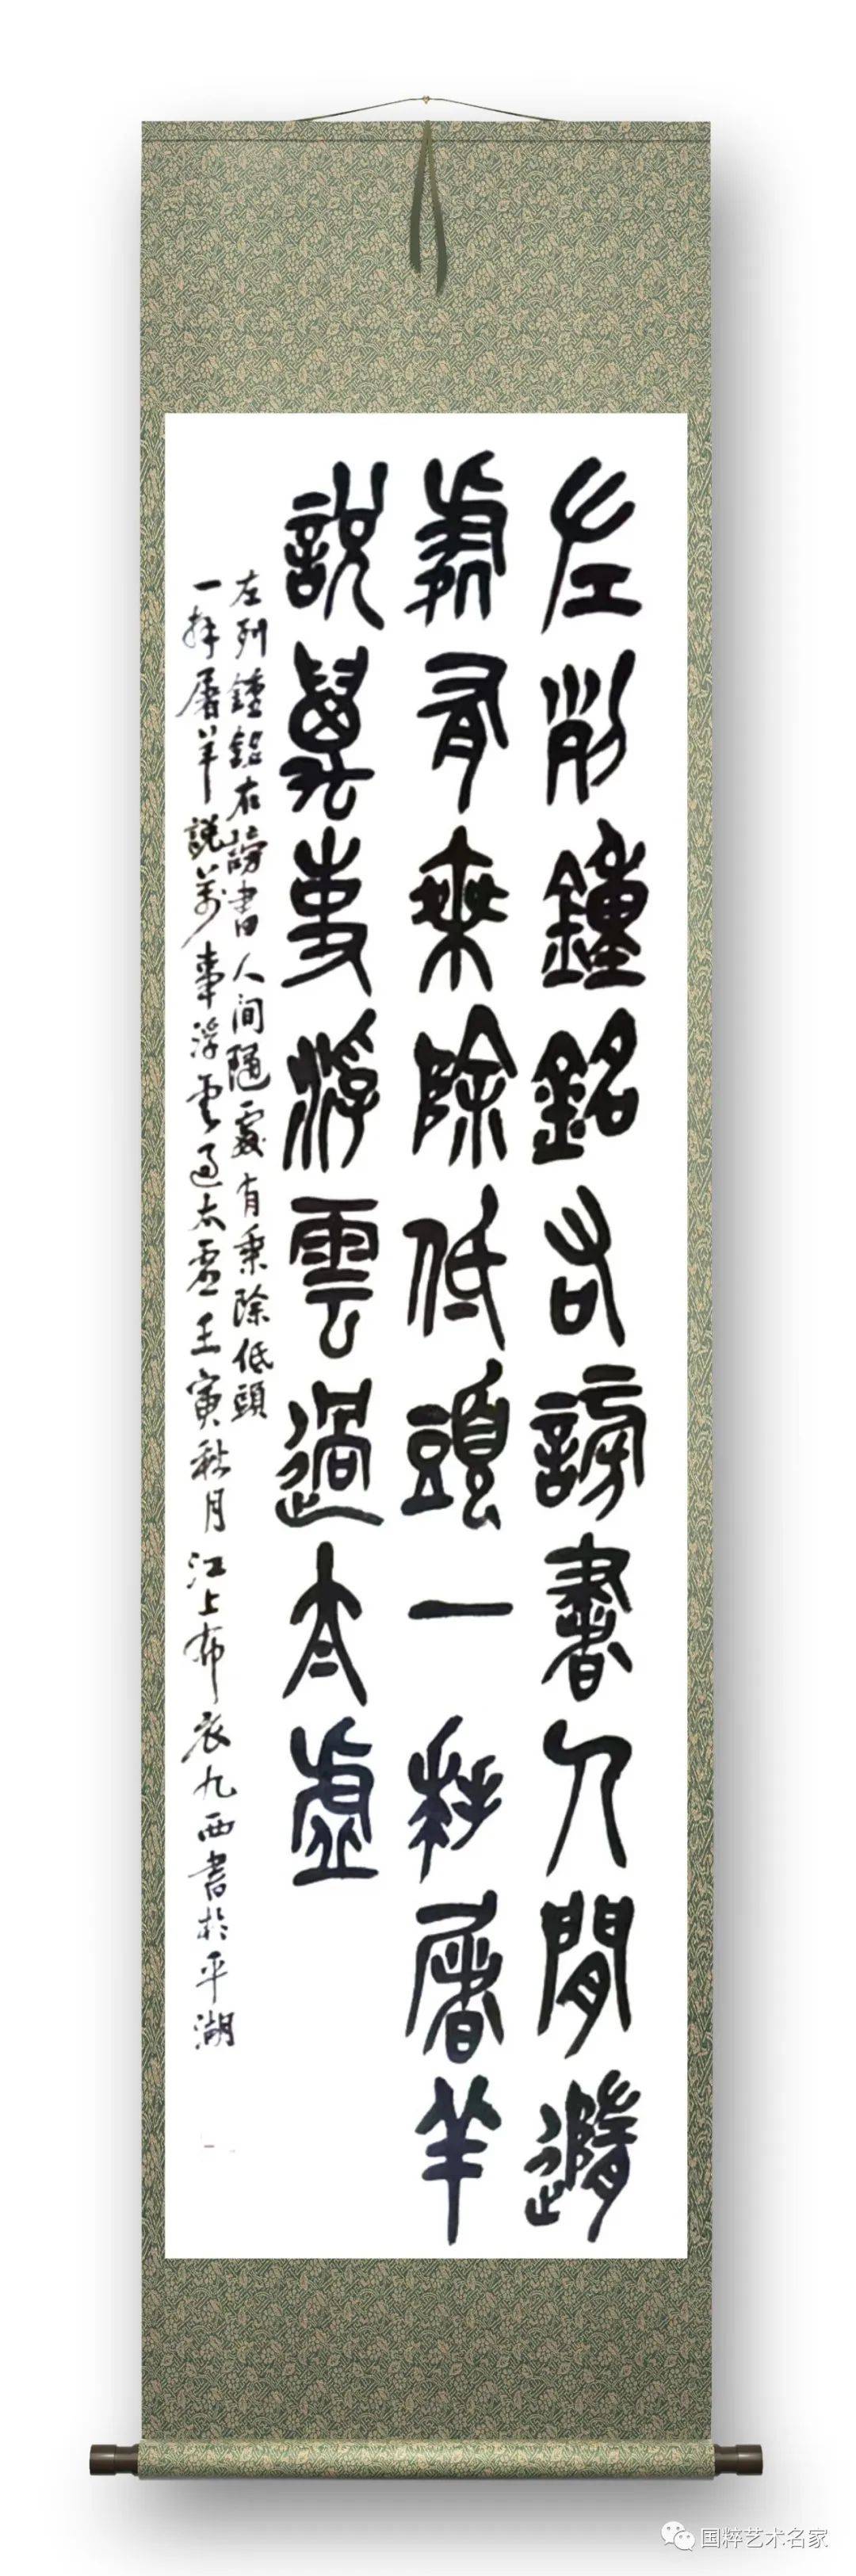 左列鐘銘右謗書人間隨
處有乘除低頭一拜屠羊
說萬事浮雲過太虛
左列鐘銘右謗書人间隨處有乘除低頭
一拜屠羊說萬事浮雲過太虛壬寅秋月江上布衣九西書於平湖
国粹艺术名家